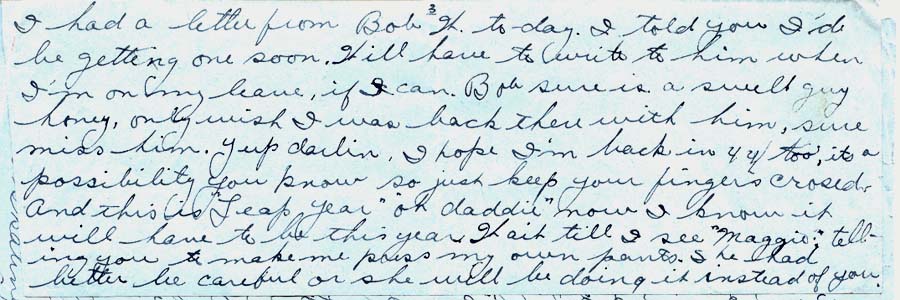 I had a letter from Bob W. to-day. I told you I'de
be getting one soon. Will have to write to him when
I'm on my leave, if I can. Bob sure is a swell guy
honey, only wish I was back there with him, sure
miss him. Yup darlin, I hope I'm back in 44 too, its a
possibility you know so just keep your fingers crosed.
And this is "Leap Year" "oh daddie" now I know it
will have to be this year. Wait till I see "Maggie," tell-
ing you to make me press my own pants. She had
better be careful or she will be doing it instead of you.